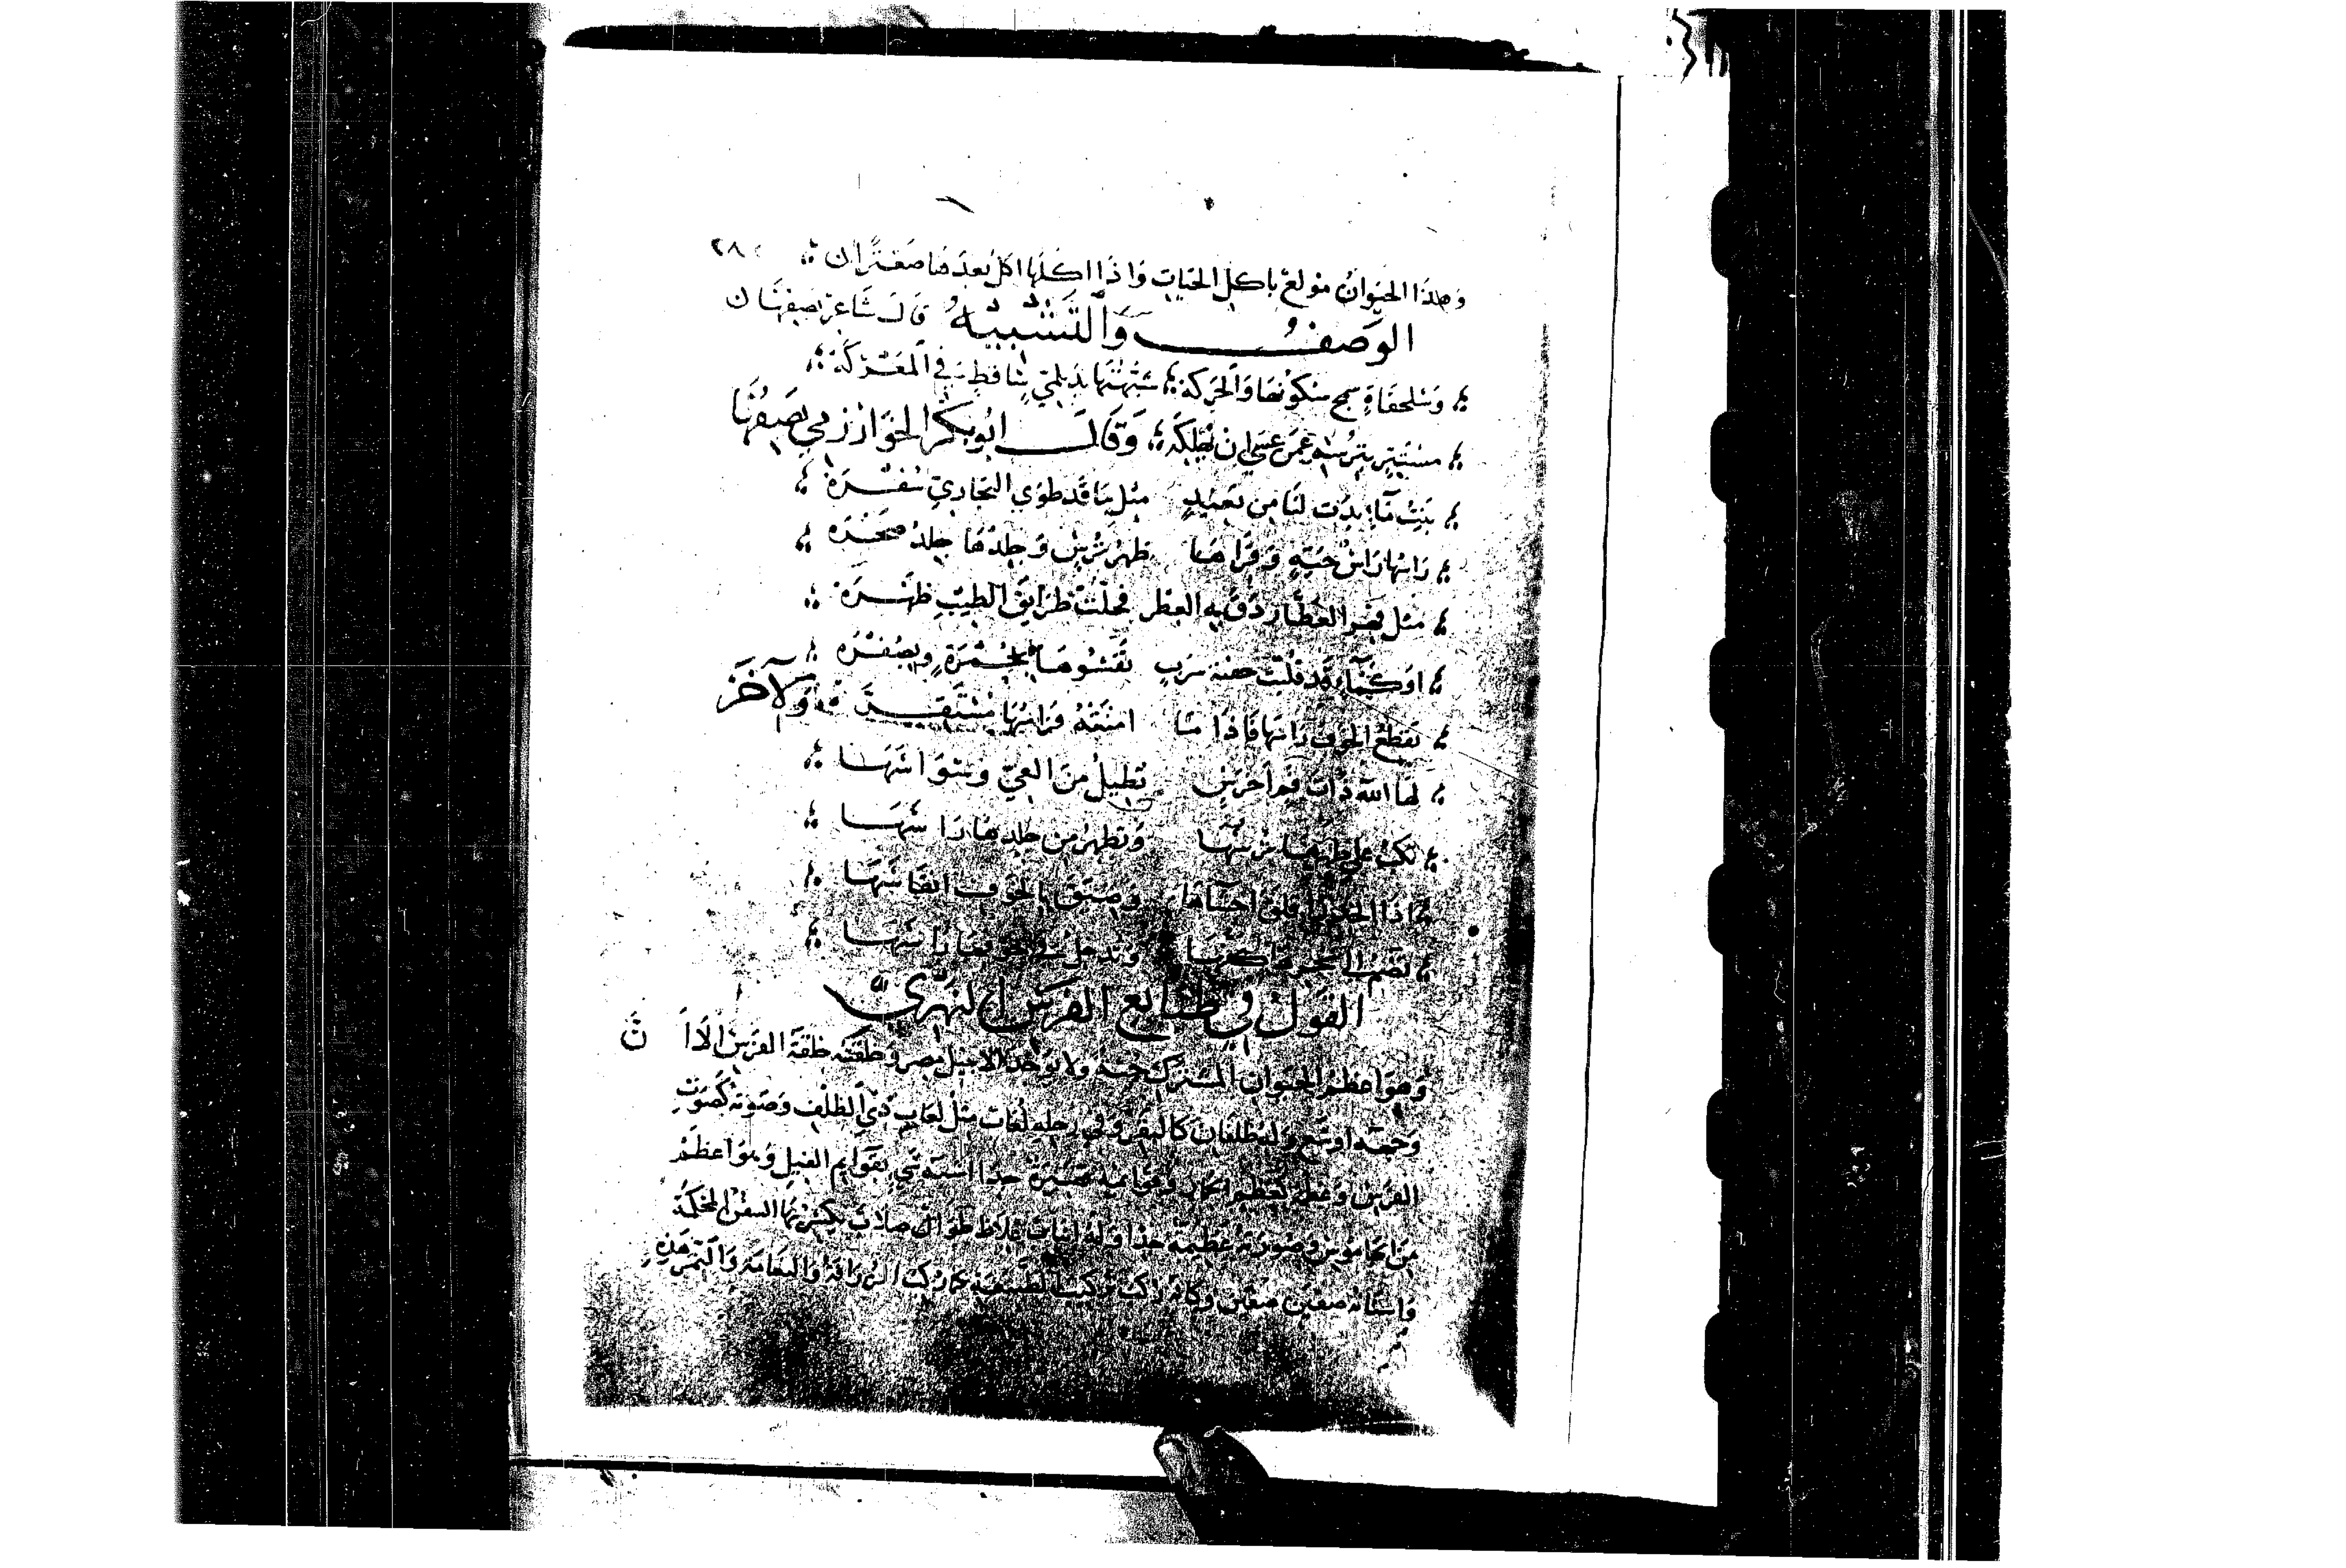 ٢٨
وهذا الحيوان مولع باكل الحيات واذا اكلها اكل بعدها صعترا ن
الوصف والتشبيه قال شاعر يصفها ن
وسلحفاة سمج سكونها والحركه شبهتها بديلمي ساقط في المعركه
مستتر بترسه عمن عسى ان يهلكه وقال ابو بكر الخوارزمي يصفها
بنت ماء بدت لنا من بعيد مثل ما قد طوى البحاري سفره
راسها راس حية وقراها ظهر ترس وجلدها جلد صخره
مثل فهر العطار دق به العطر فحلت طرايق الطيب ظهره
او كما قد قلبت جفنة شرب نقشوها بحمرة وبصفره
يقطع الخوف راسها فاذا ما امنته فراسها مستقره ولآخر
لحا الله ذات فم اخرس تطيل من العي وسواسها
تكب على ظهرها ترسها وتظهر من جلدها راسها
اذا الحذر اقلق احشاءها وضيق بالخوف انفاسها
تضم الى نحرها كفها وتدخل في جوفها راسها
القول في طبائع الفرس النهري
وهو اعظم الحيوان المشترك جثة ولا يوجد الا بنيل مصر وخلقته خلقة الفرس الا ان
وجهه اوسع وله ظلفان كالبقر وفي رجليه مثل لعاب ذي الظلف وصوته كصوت
الفرس وعظمه كعظم الحمار وقوائمه جدا اشبه شي بقوايم الفيل وهو اعظم
من الجاموس وصورته عظيمه جدا وله انياب غلاظ طوال صلاب يكسر بها السفن المحكمة
واسنانه صفين صفين وكانه ركب تركيب كما ركبت الزرافة والنعامة والببر هذه